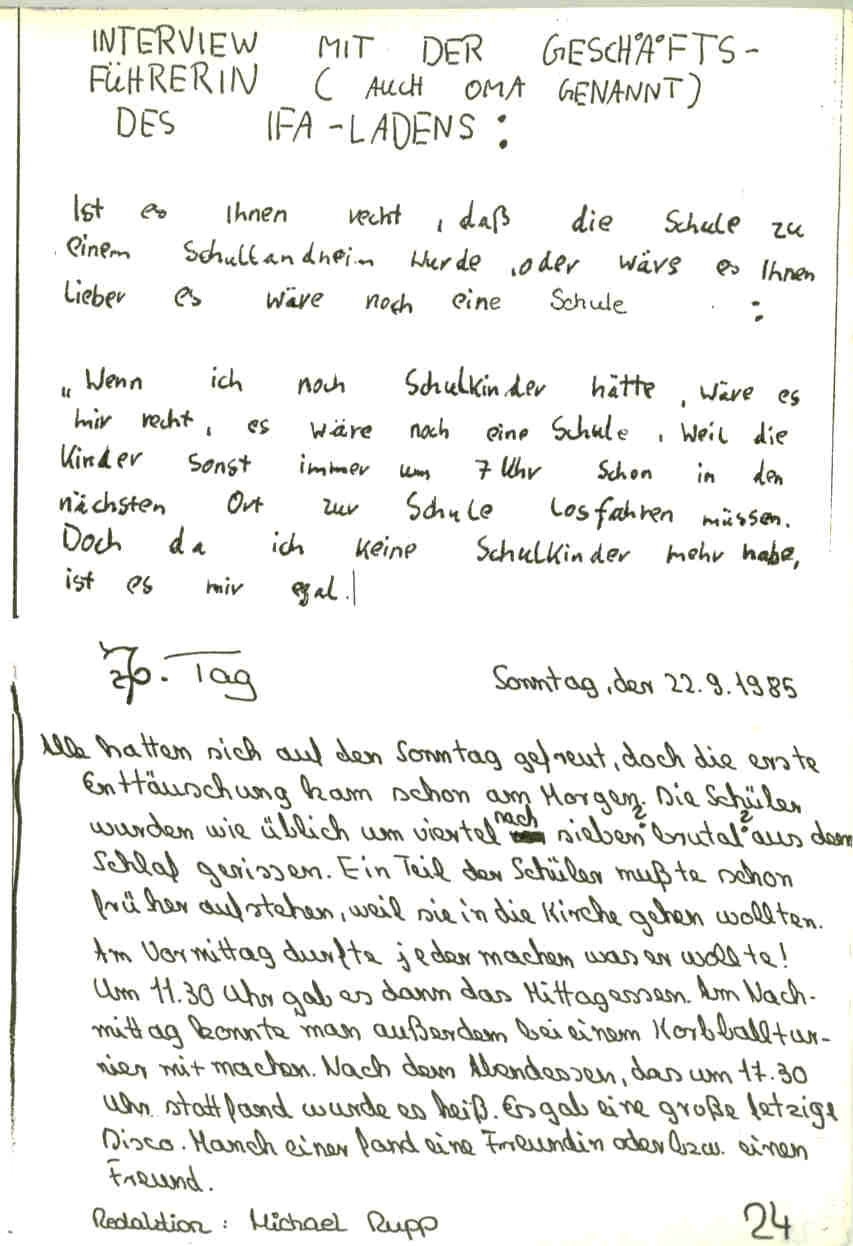 INTERVIEW MIT DER GESCHÄFTS-
FÜHRERIN ( AUCH OMA GENANNT)
DES IFA-LADENS :
Ist es Ihnen recht, daß die Schule zu
einem Schullandheim wurde, oder wäre es Ihnen
lieber es wäre noch eine Schule :
„Wenn ich noch Schulkinder hätte, wäre es
mir recht, es wäre noch eine Schule, weil die
Kinder sonst immer um 7 Uhr schon in den
nächsten Ort zur Schule losfahren müssen.
Doch da ich keine Schulkinder mehr habe,
ist es mir egal.
Tag
Sonntag, den 22.9.1985
Alle hatten sich auf den Sonntag gefreut, doch die erste
Enttäuschung kam schon am Morgen. Die Schüler
wurden wie üblich um viertel nach sieben "brutal" aus dem
Schlaf gerissen. Ein Teil der Schüler mußte schon
früher aufstehen, weil sie in die Kirche gehen wollten.
Am Vormittag durfte jeder machen was er wollte!
Um 11.30 Uhr gab es dann das Mittagessen. Am Nach-
mittag konnte man außerdem bei einem Korbballtur-
nier mitmachen. Nach dem Abendessen, das um 17.30
Uhr stattfand wurde es heiß. Es gab eine große fetzige
Disco. Manch einer fand eine Freundin oder bzw. einen
Freund.
Redaktion : Michael Rupp
24